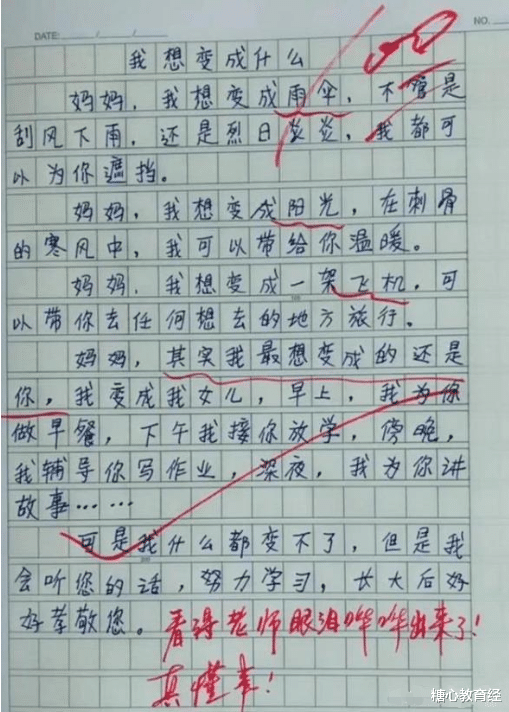 DATE:
NO.
我想变成什么
妈妈，我想变成雨伞，不管是
刮风下雨，还是烈日炎炎，我都可
以为你遮挡。
妈妈，我想变成阳光，在刺骨
的寒风中，我可以带给你温暖。
妈妈，我想变成一架飞机，可
以带你去任何想去的地方旅行。
妈妈，其实我最想变成的还是
你，我变成我女儿，早上，我为你
做早餐，下午我接你放学，傍晚，
我辅导你写作业，深夜，我为你讲
故事……
可是我什么都变不了，但是我
会听您的话，努力学习，长大后好
好孝敬您。看得老师眼泪哗哗出来了！
真懂事！
糖心教育经